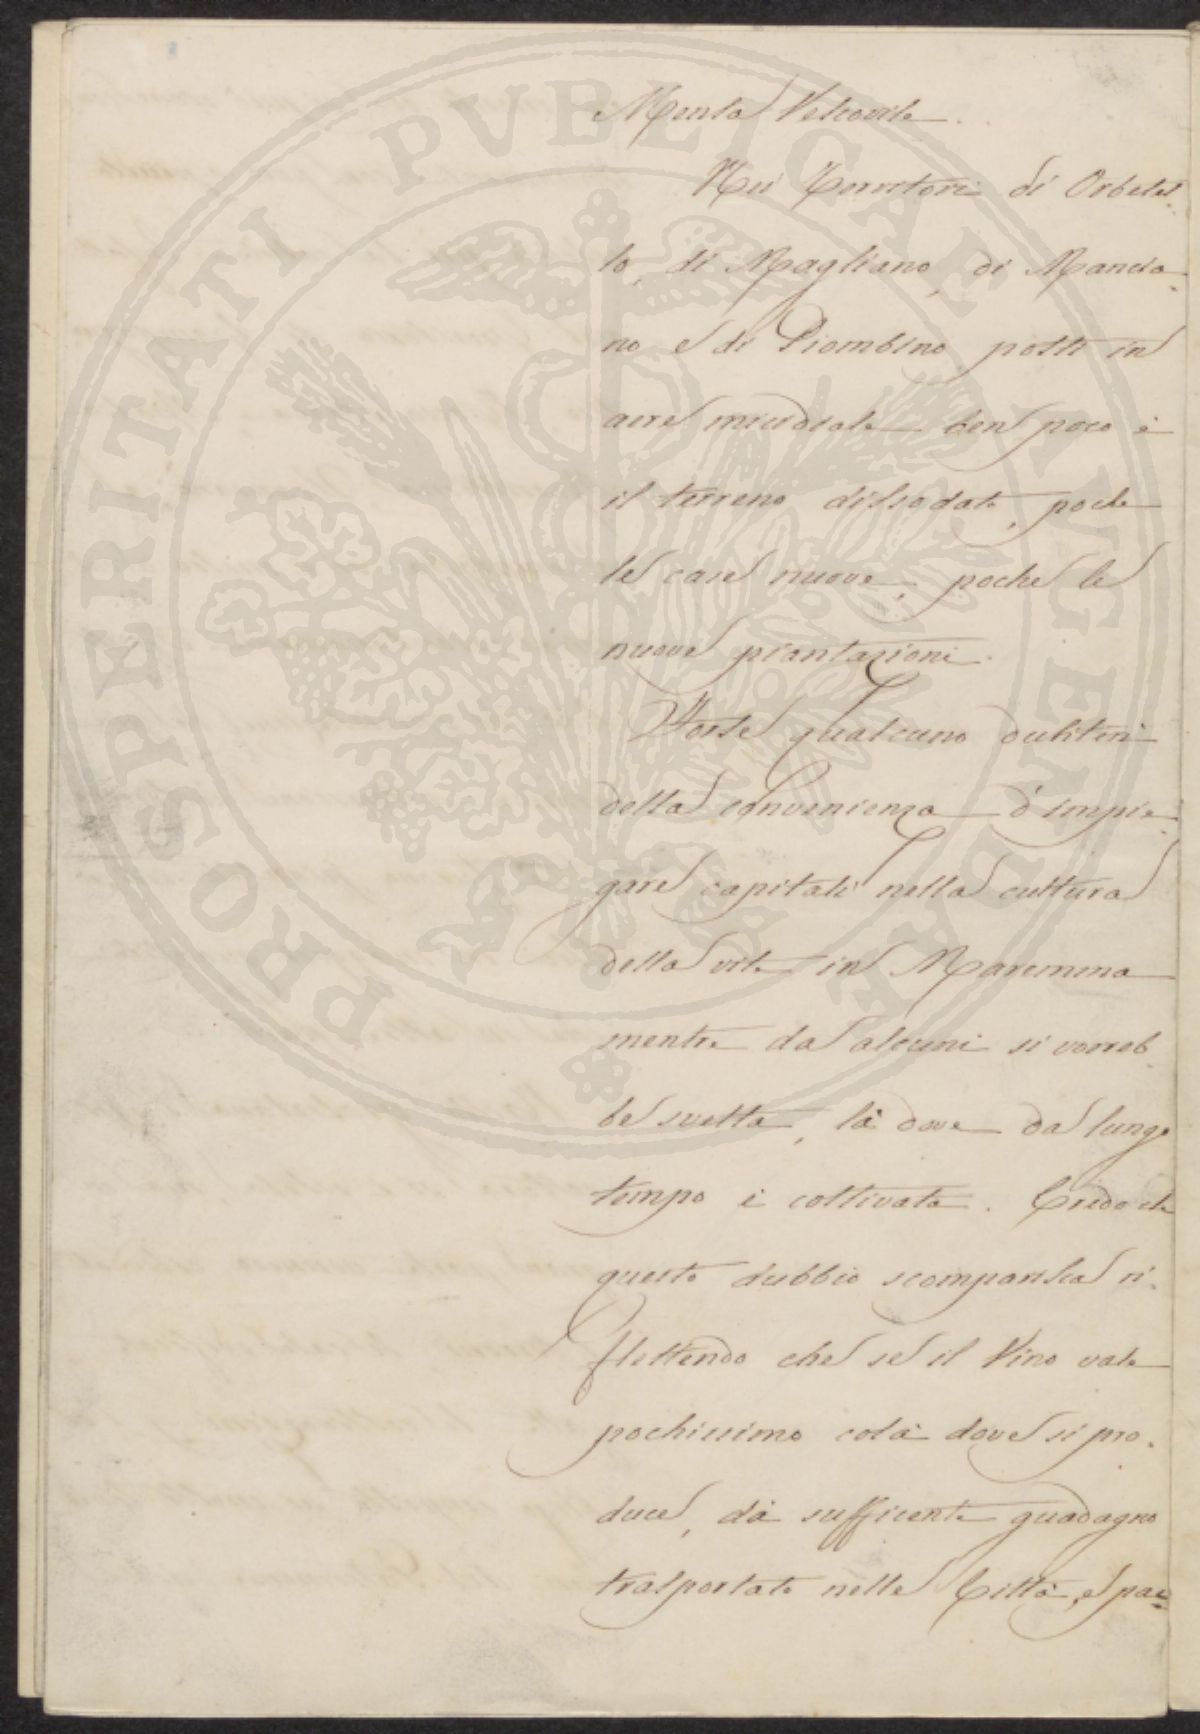 Mensa Vescovile.
Nei Territori di Orbetel-
lo, di Magliano, di Mancia-
no e di Piombino posti in
aere micidiale ben poco è
il terreno dissodato, poche
le case nuove, poche le
nuove piantazioni.
Forse qualcuno dubiterà
della convenienza d'impie-
gare capitali nella cultura
della vite in Maremma
mentre da alcuni si vorreb-
be svelta, là dove da lungo
tempo è coltivata. Credo che
questo dubbio scomparisca ri-
flettendo che se il Vino vale
pochissimo colà dove si pro-
duce, dà sufficente guadagno
trasportato nelle Città, e pae=
PROSPERITATI PVBLICAE AVGENDAE